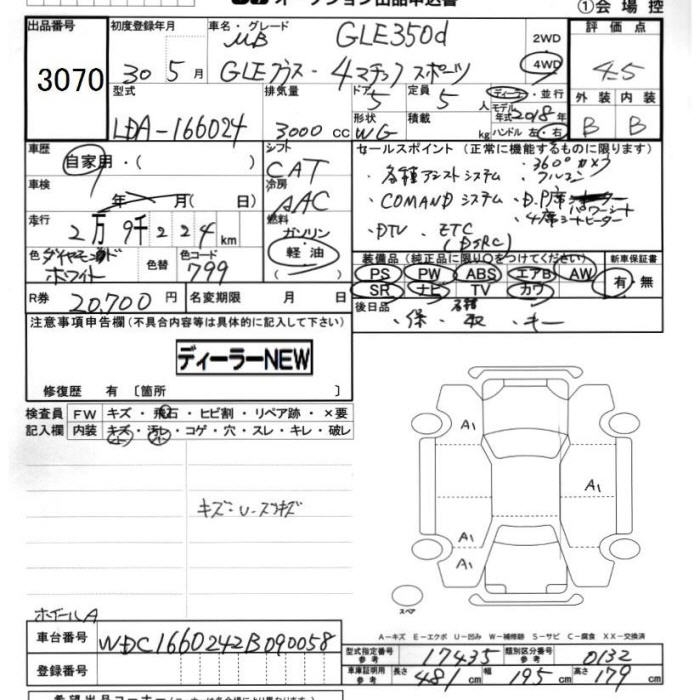 オークション出品申込書
①会場控
出品番号
3070
初度登録年月
30年 5月
車名・グレード
MB GLE350d
GLEクラス・4マチック スポーツ
2WD
4WD
評価点
4.5
外装 内装
B B
型式
LDA-166024
排気量
3000 cc
ドア
5
形状
WG
定員
5 人
積載
kg
ディーラー・並行
モデル年式 2018年
ハンドル 左・右
車歴
自家用・( )
車検
年 月( 日)
走行
2万9千224 km
色 ダイヤモンドホワイト
色替
色コード
799
シフト
CAT
冷房
AAC
燃料
ガソリン
軽・油
セールスポイント (正常に機能するものに限ります)
・各種アシストシステム ・360°カメラ
・フルコン
・COMANDシステム ・D.P席パワーシート
・4席シートヒーター
・DTV ・ETC
(DSRC)
装備品(純正品に限り○をつけてください)
PS PW ABS エアB AW
SR ナビ TV カワ
新車保証書
有・無
R券 20,700 円
名変期限 月 日
後日品 各種
・保 ・取 ・キー
注意事項申告欄(不具合内容等は具体的に記入して下さい)
ディーラーNEW
修復歴 有〔箇所 〕
検査員
記入欄
FW キズ・飛石・ヒビ割・リペア跡・×要
内装 キズ・汚レ・コゲ・穴・スレ・キレ・破レ
A1
A1
A1
A1
スペア
ホイールA
A-キズ E-エクボ U-凹み W-補修跡 S-サビ C-腐食 XX-交換済
車台番号
WDC1660242B090058
登録番号
型式指定番号 参考 17435
類別区分番号 参考 0132
車庫証明用 参考 長さ 481cm 幅 195cm 高さ 179cm